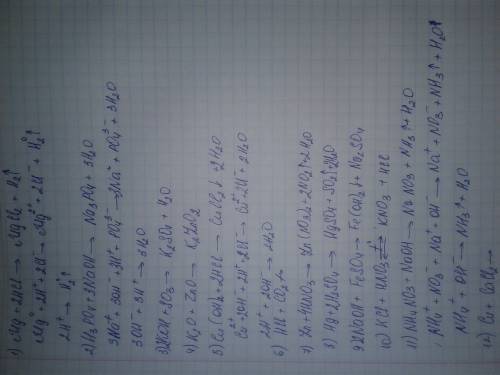 1) Mg + 2HCl → MgCl₂ + H₂↑
Mg⁰ + 2H⁺ + 2Cl⁻ → Mg²⁺ + 2Cl⁻ + H₂⁰↑
2H⁺ → H₂↑
2) H₃PO₄ + 3NaOH → Na₃PO₄ + 3H₂O
3Na⁺ + 3OH⁻ + 3H⁺ + PO₄³⁻ → 3Na⁺ + PO₄³⁻ + 3H₂O
3OH⁻ + 3H⁺ → 3H₂O
3) 2KOH + SO₃ → K₂SO₄ + H₂O
4) K₂O + ZnO → K₂ZnO₂
5) Cu(OH)₂ + 2HCl → CuCl₂ + 2H₂O
Cu²⁺ + 2OH⁻ + 2H⁺ + 2Cl⁻ → Cu²⁺ + 2Cl⁻ + 2H₂O
2H⁺ + 2OH⁻ → 2H₂O
6) HCl + CO₂ →
7) Zn + 4HNO₃ → Zn(NO₃)₂ + 2NO₂↑ + 2H₂O
8) Hg + 2H₂SO₄ → HgSO₄ + SO₂↑ + 2H₂O
9) 2NaOH + FeSO₄ → Fe(OH)₂↓ + Na₂SO₄
10) KCl + HNO₃ ⇄ KNO₃ + HCl
11) NH₄NO₃ + NaOH → NaNO₃ + NH₃↑ + H₂O
NH₄⁺ + NO₃⁻ + Na⁺ + OH⁻ → Na⁺ + NO₃⁻ + NH₃↑ + H₂O
NH₄⁺ + OH⁻ → NH₃↑ + H₂O
12) Cu + CaCl₂ →